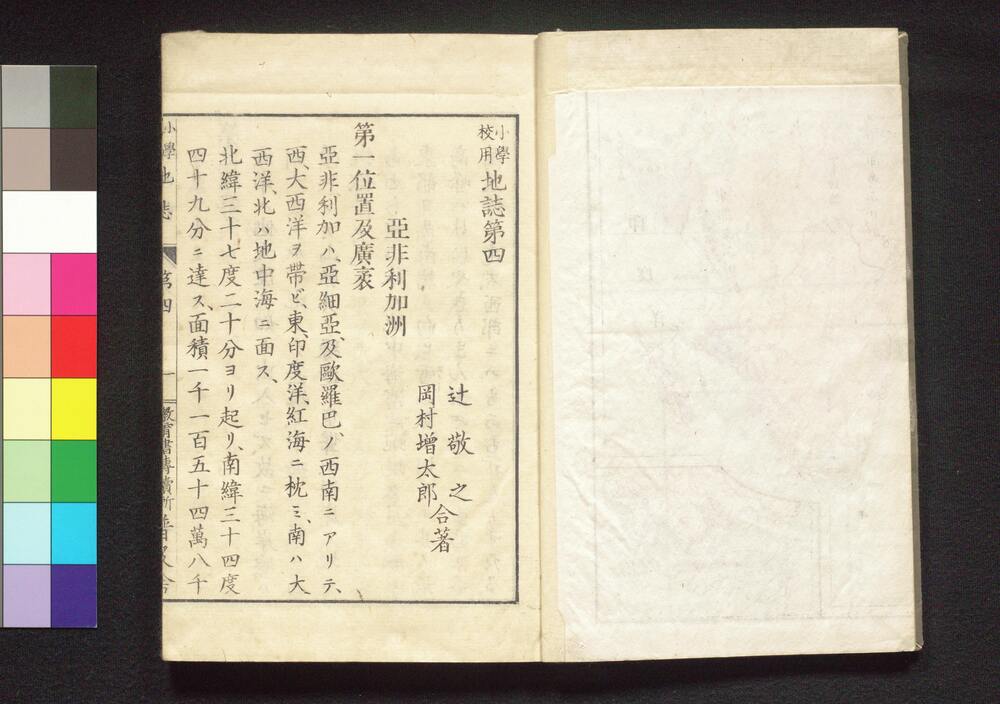 小學校用地誌第四
辻敬之
岡村增太郎
合著
亞非利加洲
第一位置及廣袤
亞非利加ハ、亞細亞、及歐羅巴ノ西南ニアリテ、
西、大西洋ヲ帶ビ、東、印度洋、紅海ニ枕ミ、南ハ大
西洋、北ハ地中海ニ面ス、
北緯三十七度二十分ヨリ起リ、南緯三十四度
四十九分ニ達ス、面積一千一百五十四萬八千
小學地誌 第四 一